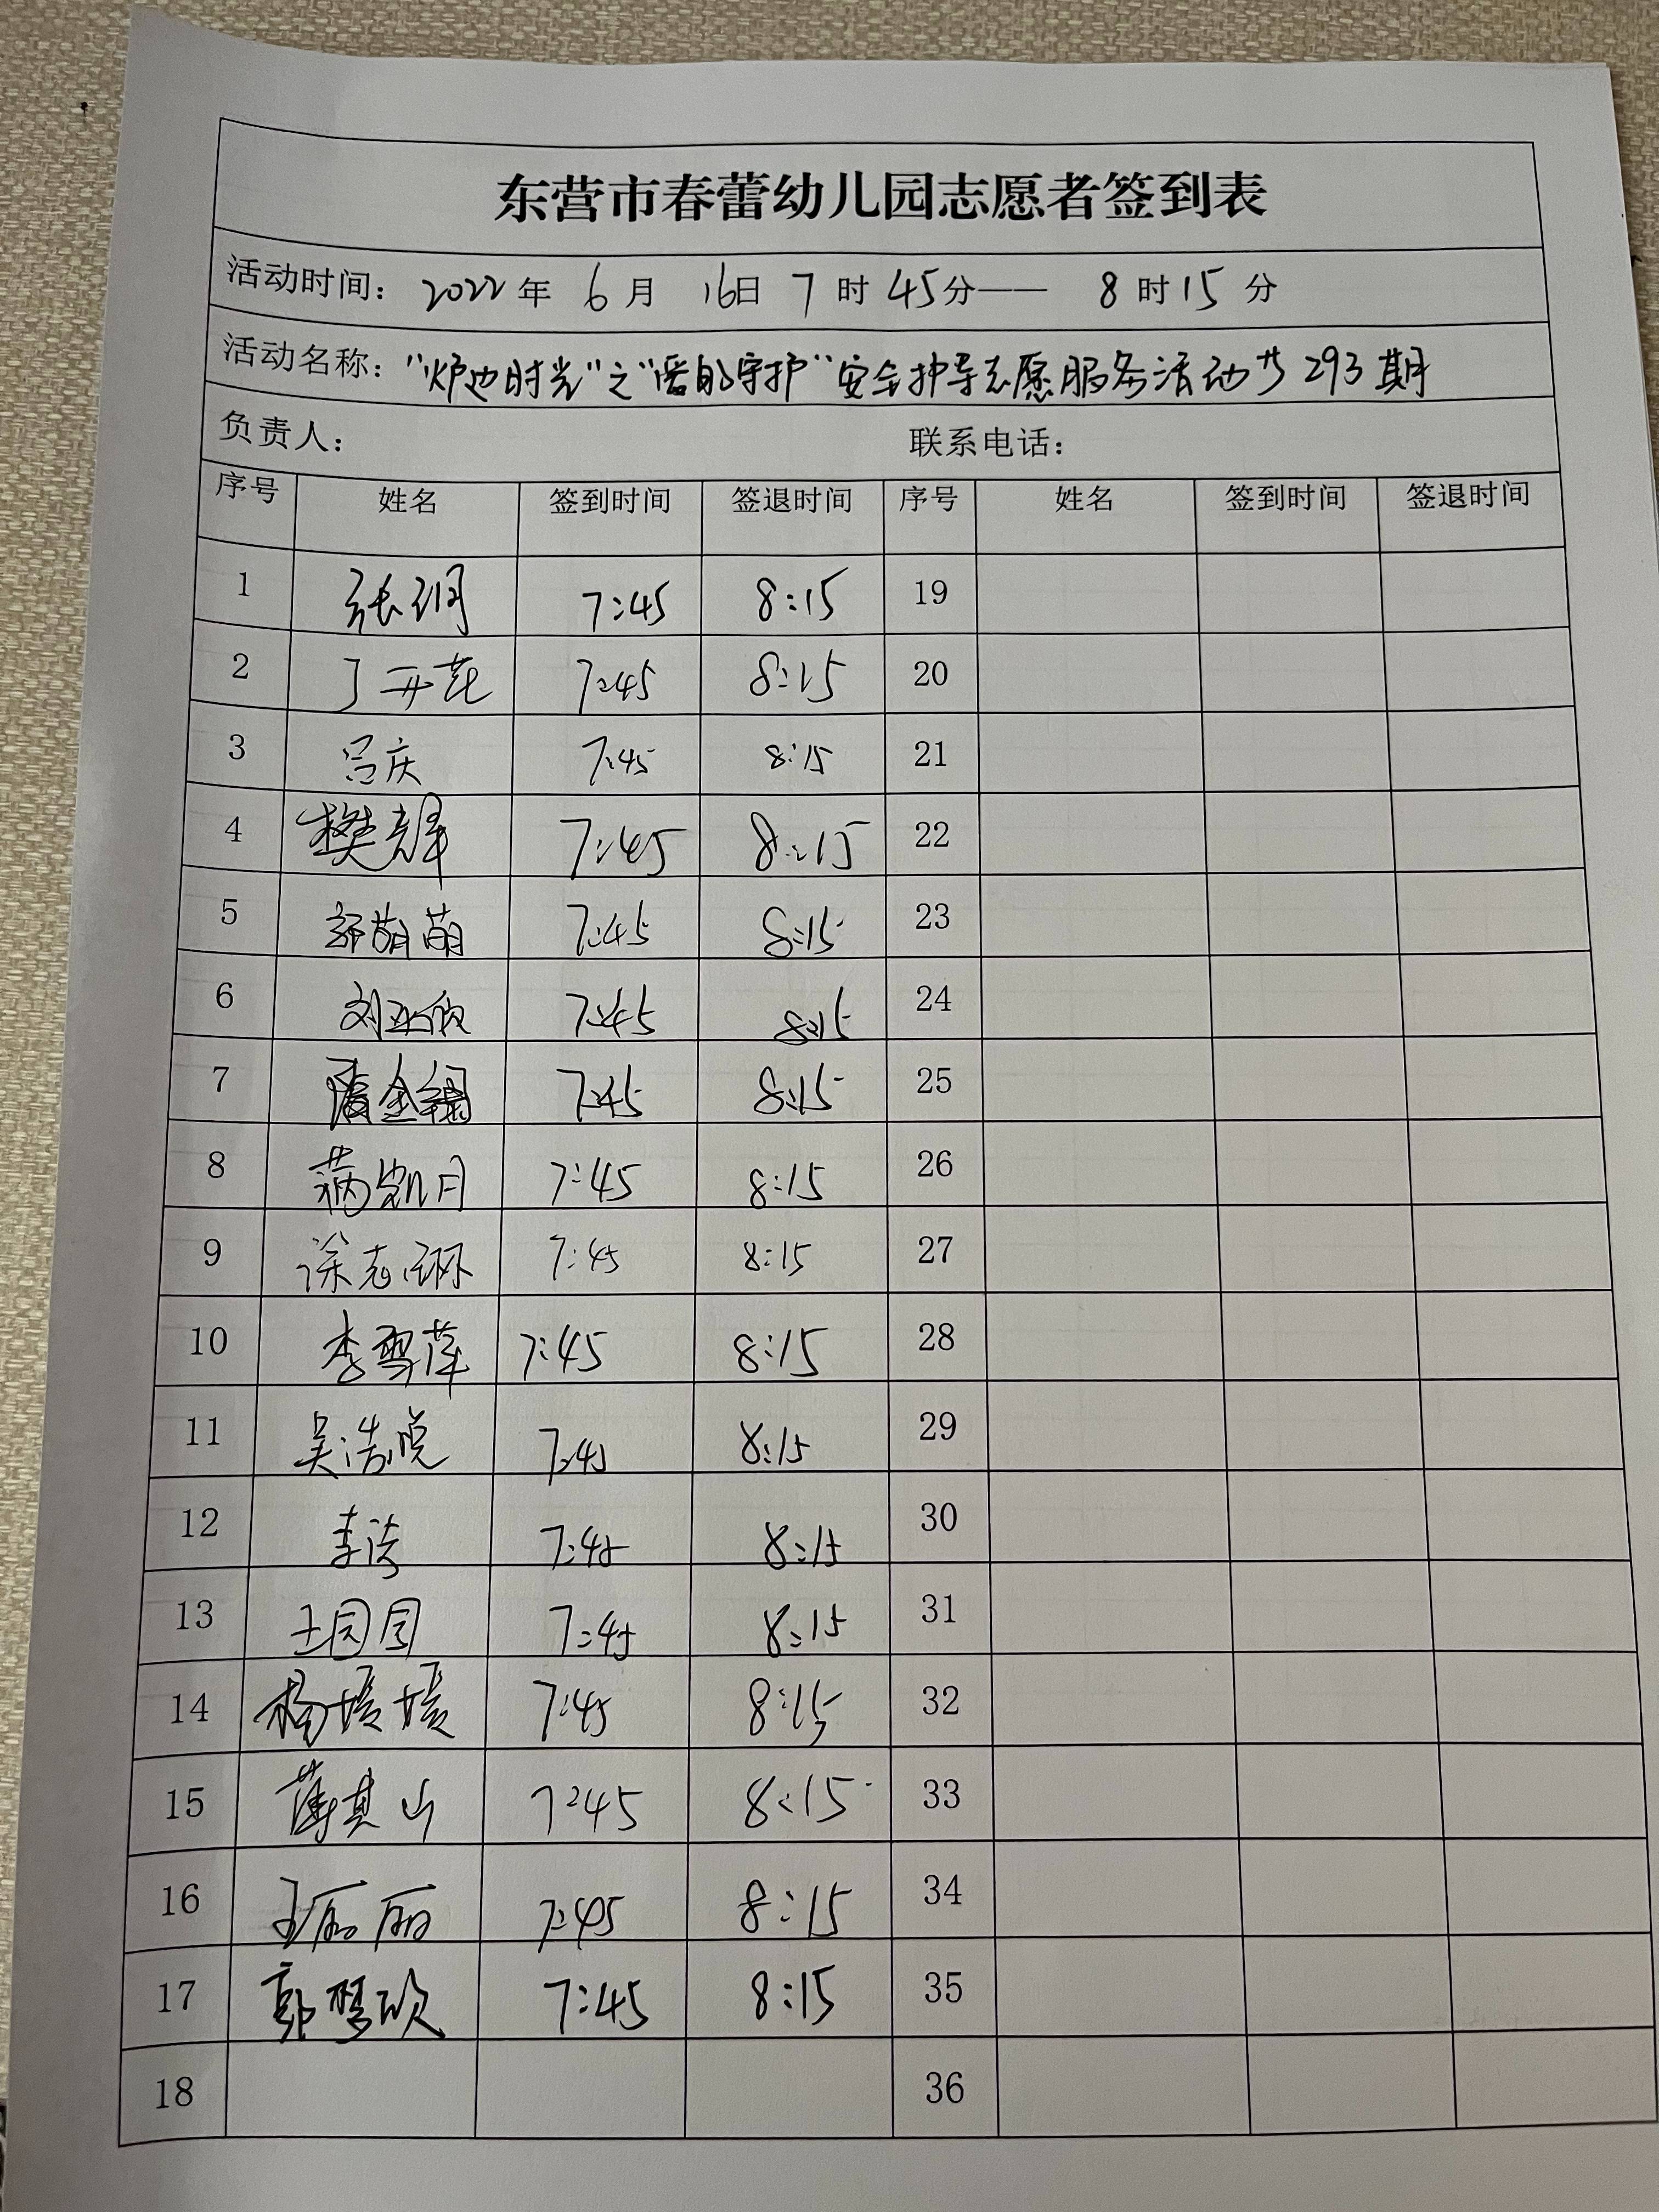 东营市春蕾幼儿园志愿者签到表
活动时间：2022年 6月 16日 7时 45分—— 8时15分
活动名称：“炉边时光”之“暖的守护”安全护导志愿服务活动共293期
负责人： 联系电话：
序号 姓名 签到时间 签退时间 序号 姓名 签到时间 签退时间
1 张 7:45 8:15 19
2 丁开花 7:45 8:15 20
3 吕庆 7:45 8:15 21
4 樊 7:45 8:15 22
5 萌萌 7:45 8:15 23
6 刘 7:45 8:15 24
7 7:45 8:15 25
8 凯月 7:45 8:15 26
9 徐志 7:45 8:15 27
10 李雪萍 7:45 8:15 28
11 吴浩悦 7:45 8:15 29
12 李涛 7:45 8:15 30
13 王园园 7:45 8:15 31
14 杨媛媛 7:45 8:15 32
15 薄其山 7:45 8:15 33
16 王丽丽 7:45 8:15 34
17 郭梦欣 7:45 8:15 35
18 36